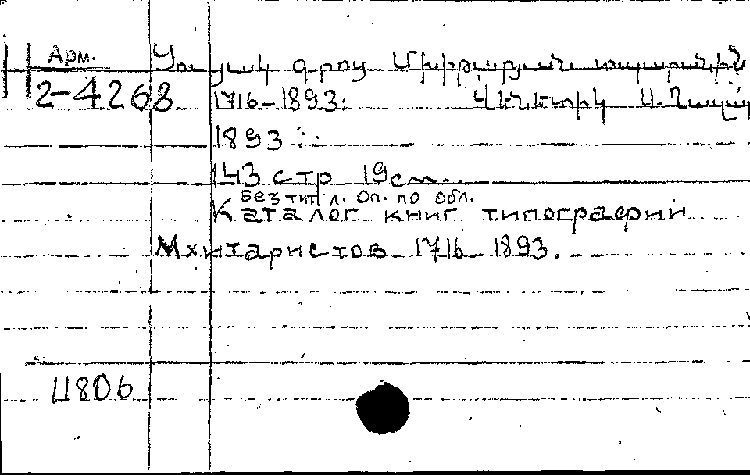 Арм.
Ցուցակ գրոց Մխիթարյան տպարանին
2-4268
1716-1893: Վենետիկ Ս. Ղազար
1893 :
143 стр 19см.
Без тит л. Оп. по обл.
Каталог книг типографии
Мхитаристов 1716-1893.
4806